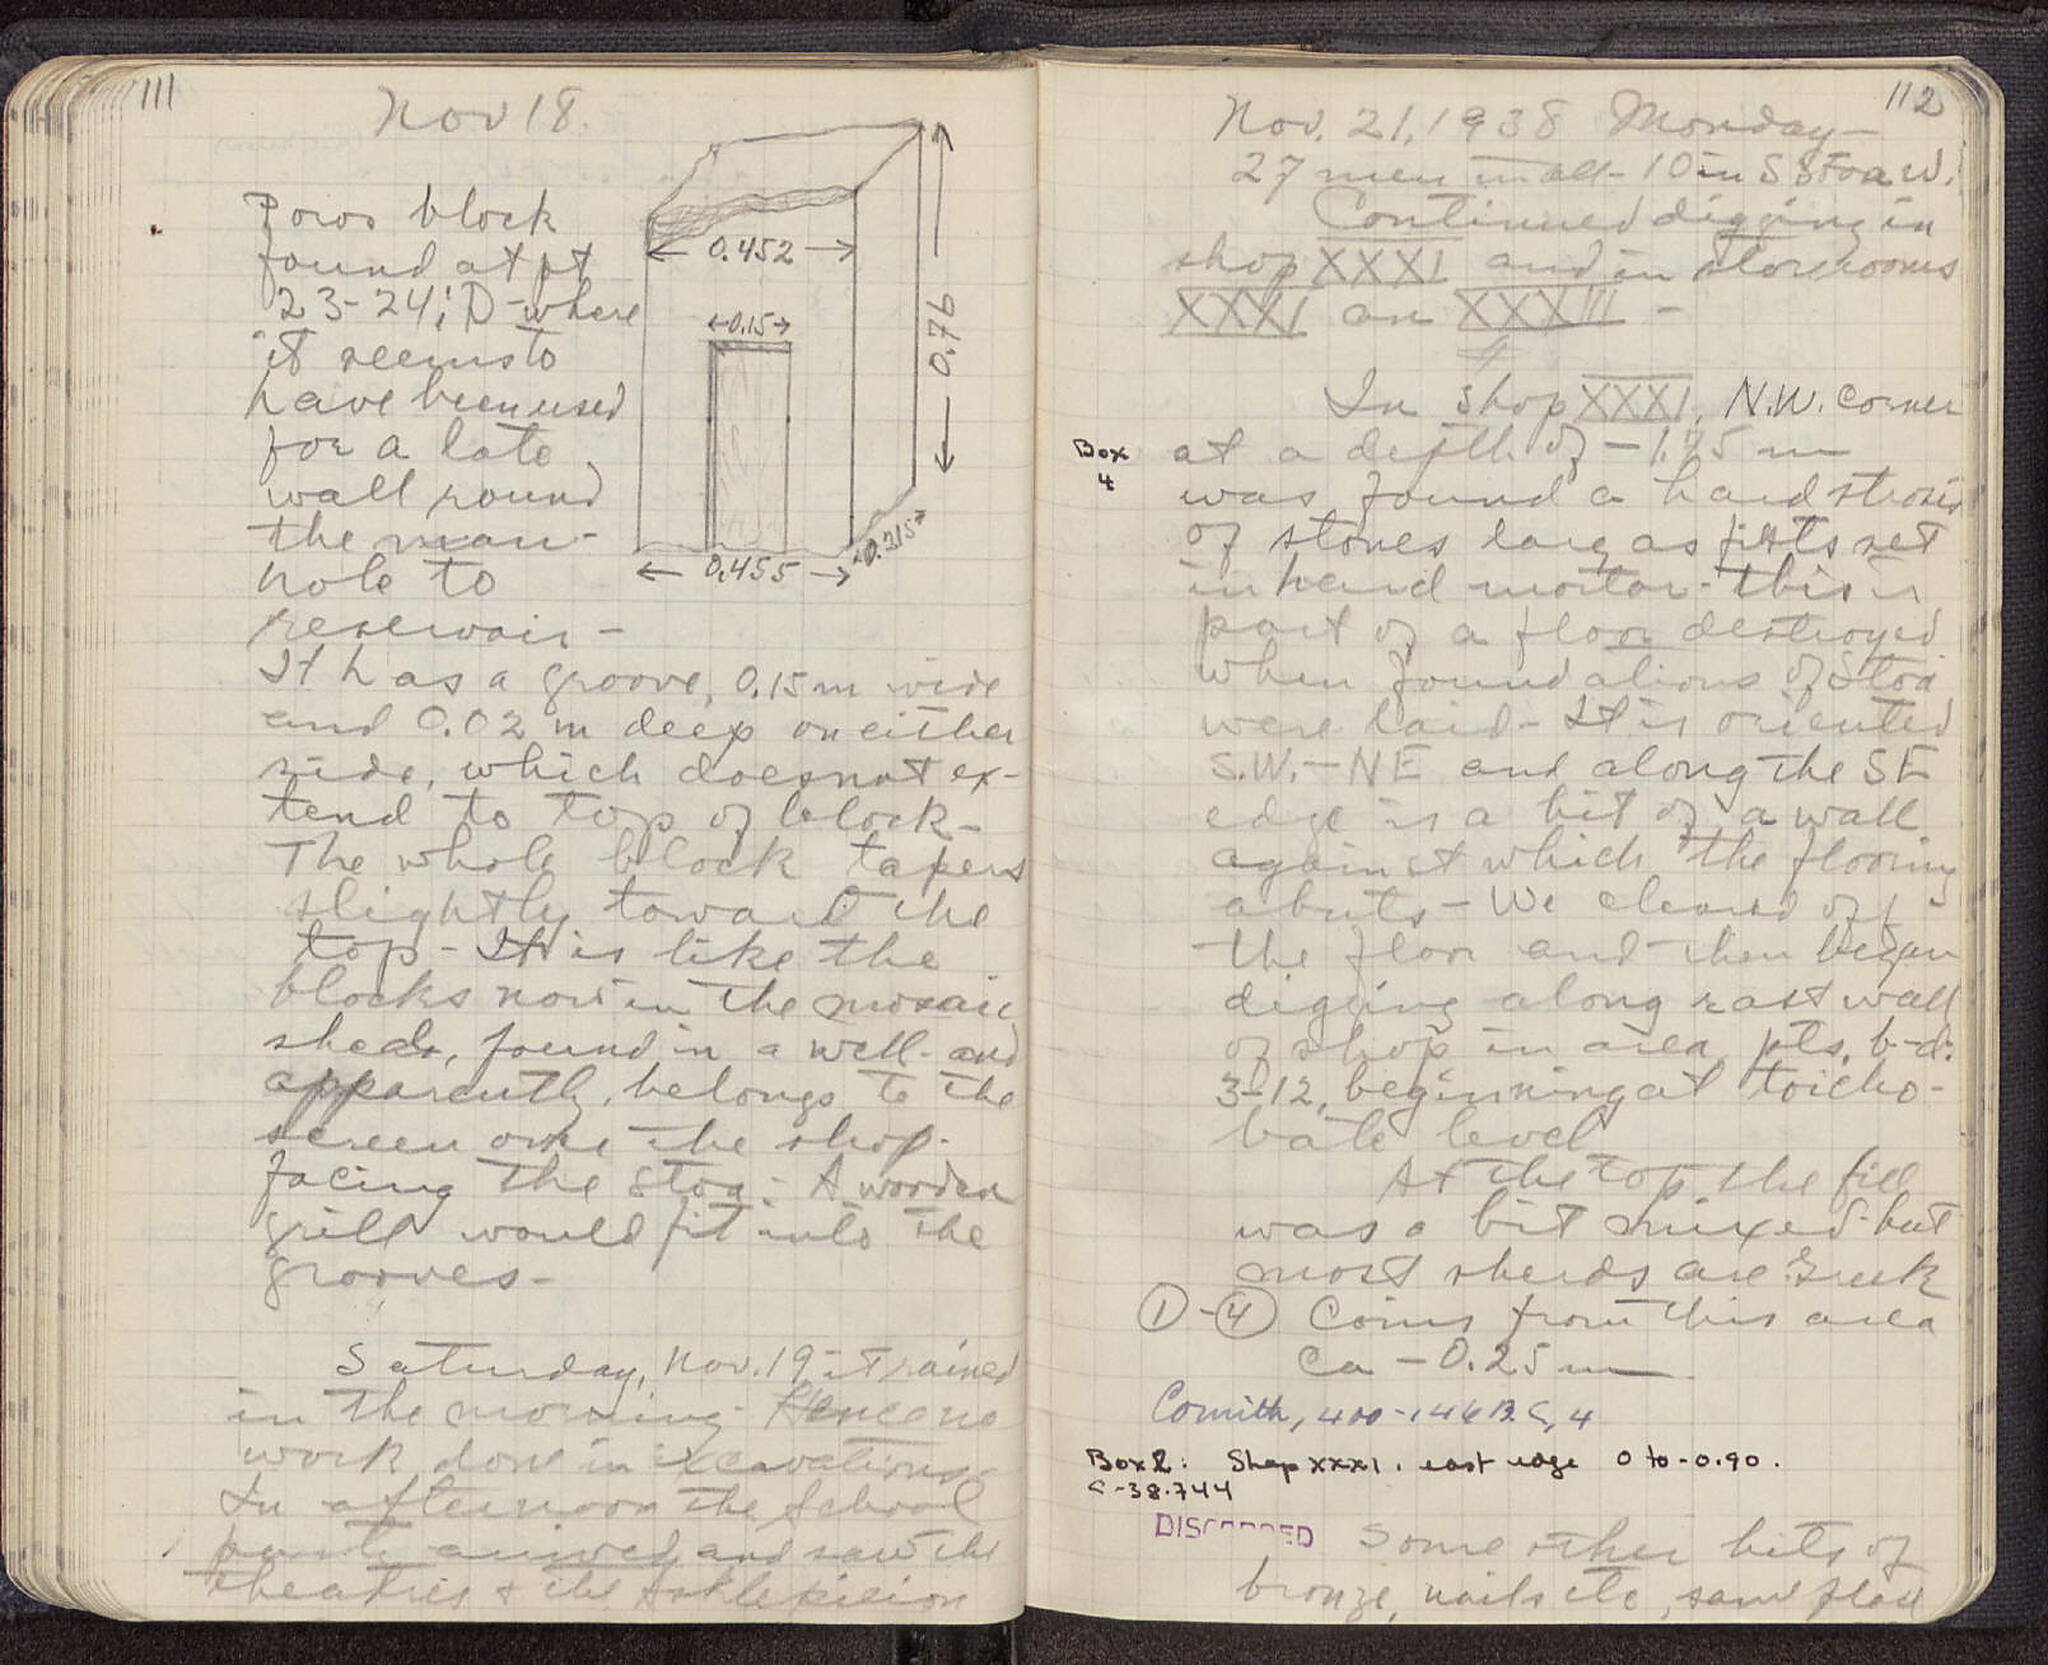 111
Nov 18.
Poros block
found at pt
23-24; D - where
it seems to
have been used
for a late
wall round
the man-
hole to
reservoir -
0.452
0.15
0.76
0.455
0.215
It has a groove, 0.15 m wide
and 0.02 m deep on either
side, which does not ex-
tend to top of block -
The whole block tapers
slightly toward the
top - It is like the
blocks now in the mosaic
sheds, found in a well - and
apparently belongs to the
screen over the shop
facing the Stoa - A wooden
grill would fit into the
grooves -
Saturday, Nov. 19 - it rained
in the morning. Hence no
work done in excavations
In afternoon the School
party arrived and saw the
theatres & the Asklepieion
112
Nov. 21, 1938 Monday -
27 men in all - 10 in S Stoa W.
Continued digging in
shop XXXI and in storerooms
XXXI an XXXIII -
In shop XXXI, N.W. corner
Box
4
at a depth of - 1.75 m
was found a hard strosis
of stones larg as fists set
in hard mortar - this is
part of a floor destroyed
when foundations of Stoa
were laid - It is oriented
S.W. - NE and along the SE
edge is a bit of a wall
against which the flooring
abuts - We cleared off
the floor and then began
digging along east wall
of shop in area, pts. b-d:
3-12, beginning at toicho-
bate level
At the top the fill
was a bit mixed - but
most sherds are Greek
1 - 4 Coins from this area
Ca - 0.25 m
Corinth, 400-146 B.C, 4
Box 2: Shop XXXI. east edge 0 to -0.90.
C-38.744
DISCARDED
Some other bits of
bronze, nails etc, same place